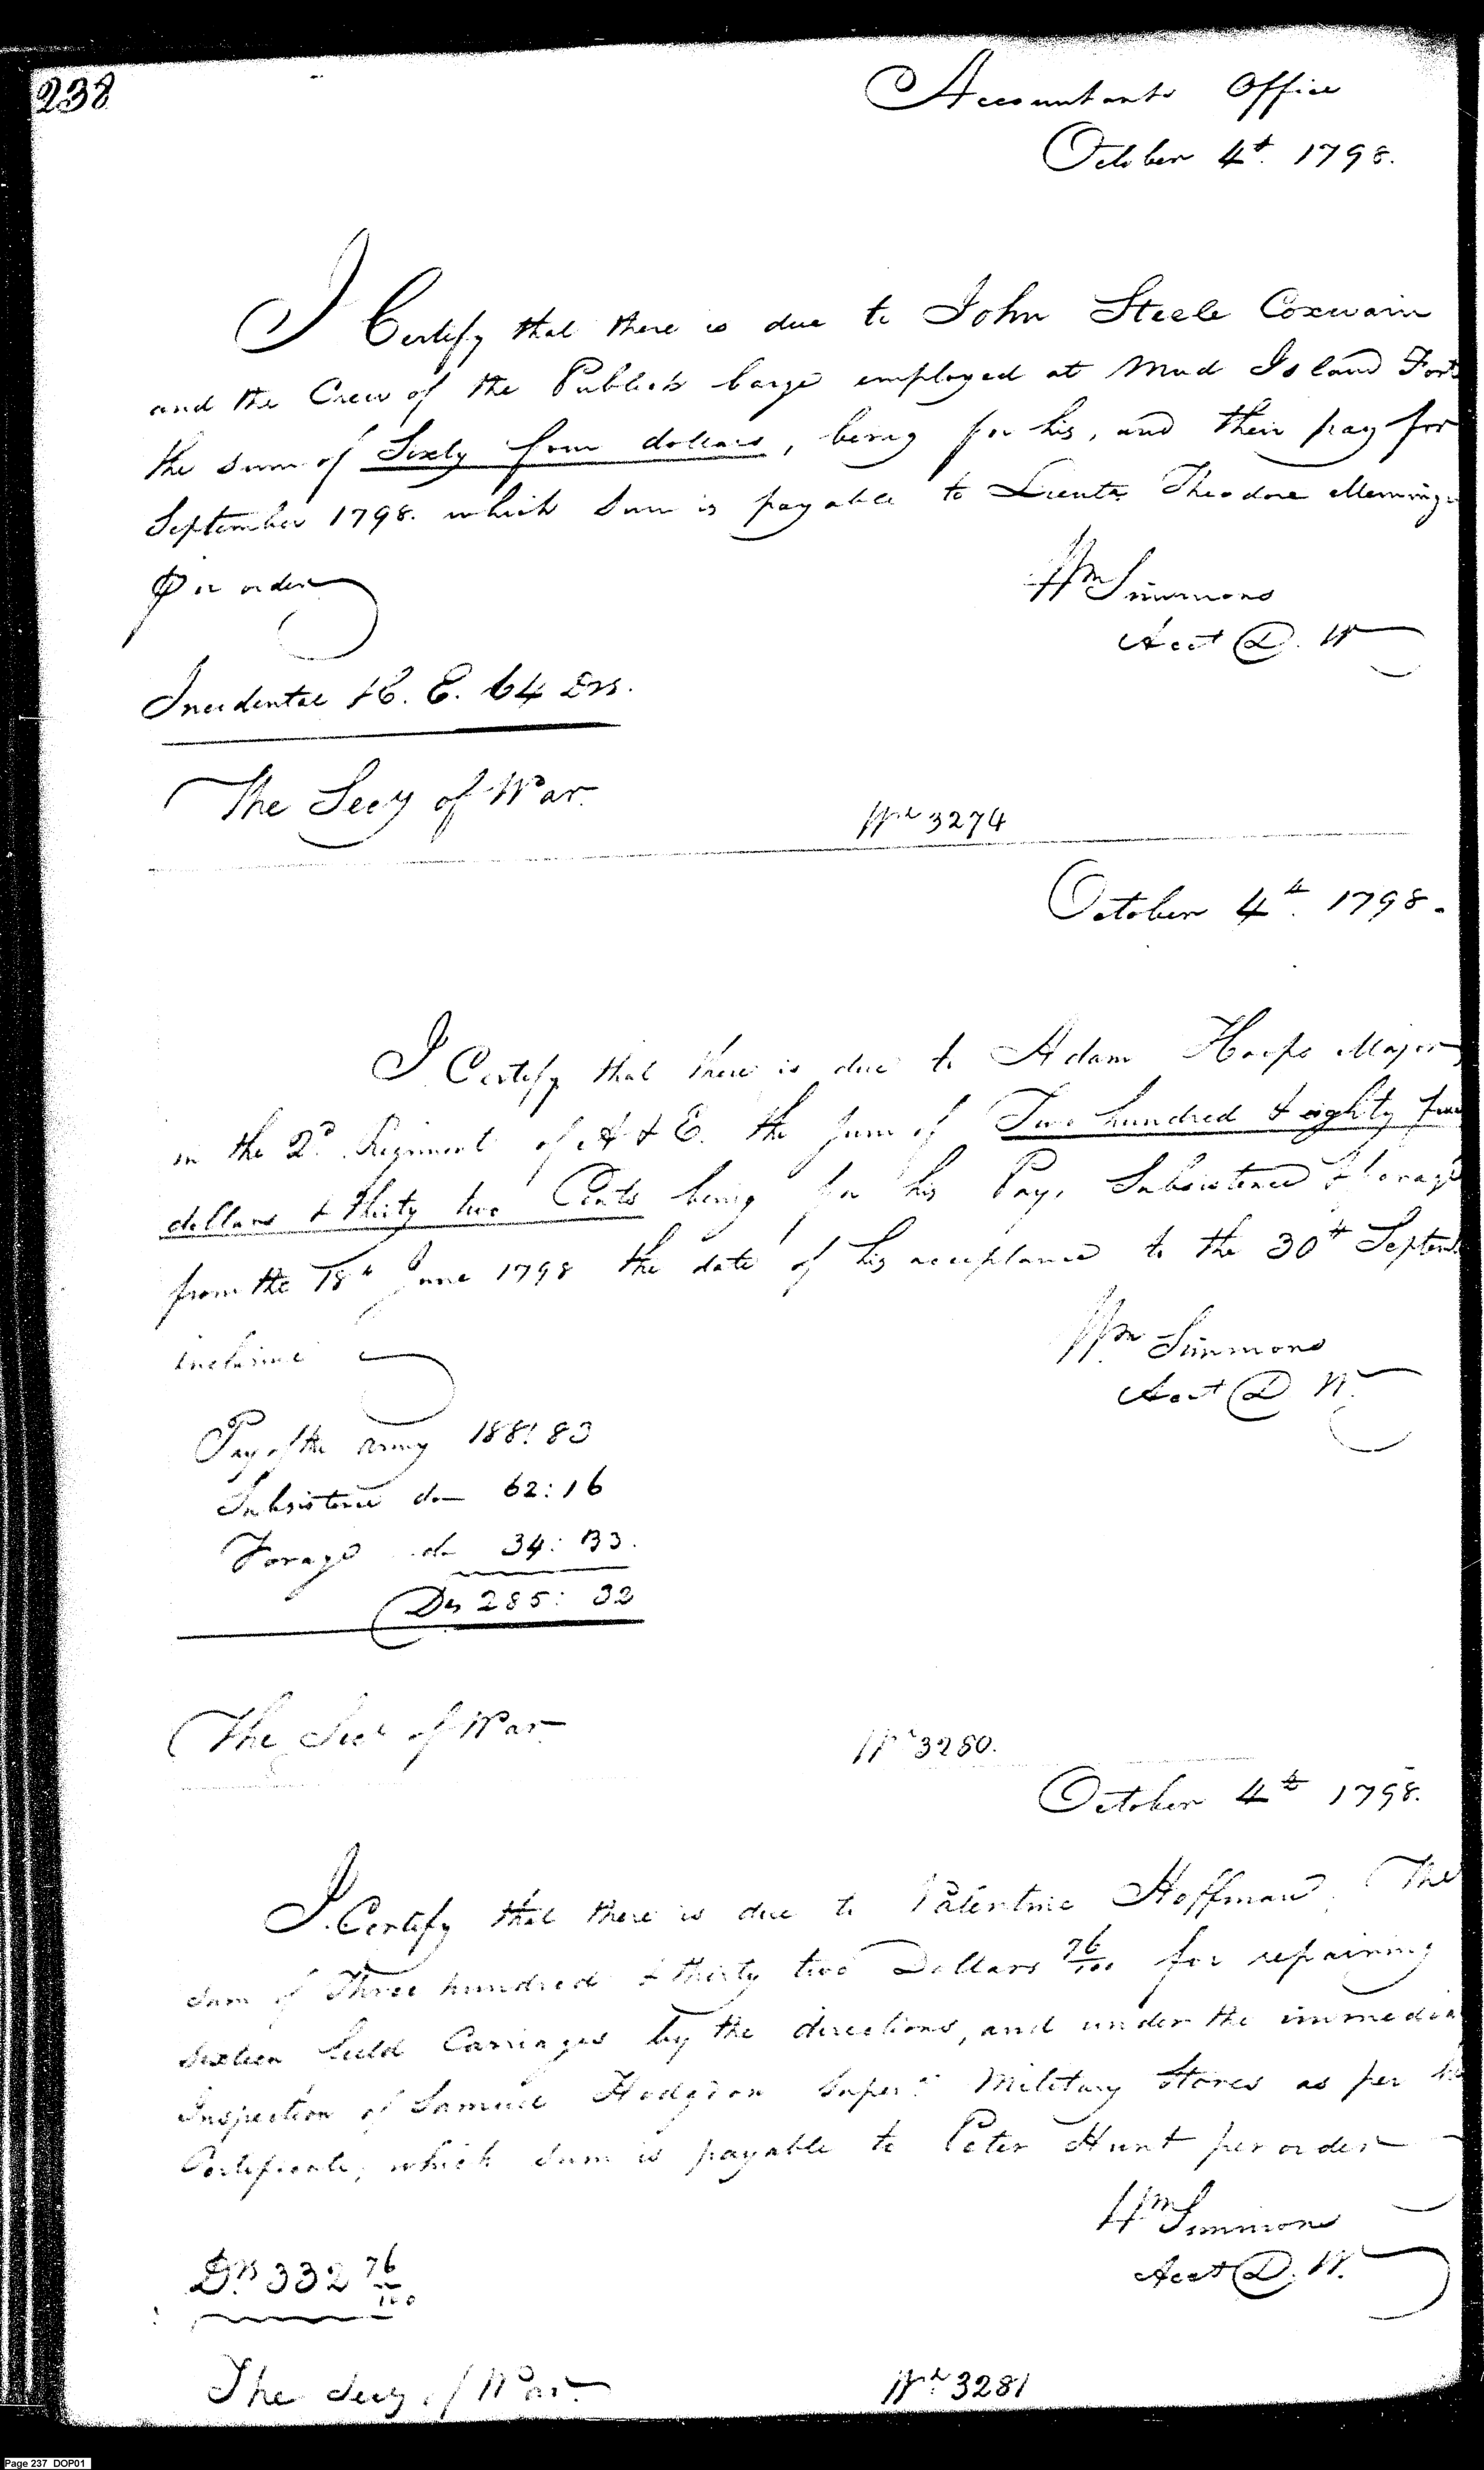 238
Accountants Office
October 4th. 1798.
I Certify that there is due to John Steele Coxwain
and the Crew of the Publick barge employed at Mud Island Fort
the sum of Sixty four dollars, being for his, and their pay for
September 1798. which sum is payable to Lieutt. Theodore Memming
Per order
Wm Simmons
Acct D. W
Incidental H. E. 64 Drs.
The Secy of War.
Wt 3274
October 4th. 1798.
I Certify that there is due to Adam Hoops Major
in the 2d. Regiment of A & E. the sum of Two hundred & eighty five
dollars & thirty two Cents being for his Pay, Subsistence & forage
from the 18th June 1798 the date of his acceptance to the 30th Septemb
inclusive
Wm Simmons
Acct D W.
Pay of the Army 188: 83
Subsistence do 62: 16
Forage do 34: 33.
Drs 285: 32
The Secy of War
Wt 3280.
October 4th 1798.
I Certify that there is due to Valentine Hoffman, The
sum of Three hundred & thirty two Dollars 76/100 for repairing
Sixteen field Carriages by the directions, and under the immedia
Inspection of Samuel Hodgdon Supert. Military Stores as per his
Certificate, which sum is payable to Peter Hunt per order
Wm Simmons
Acct D. W.
Drs. 332 76/100
The Secy of War.
Wt. 3281
Page 237 DOP01